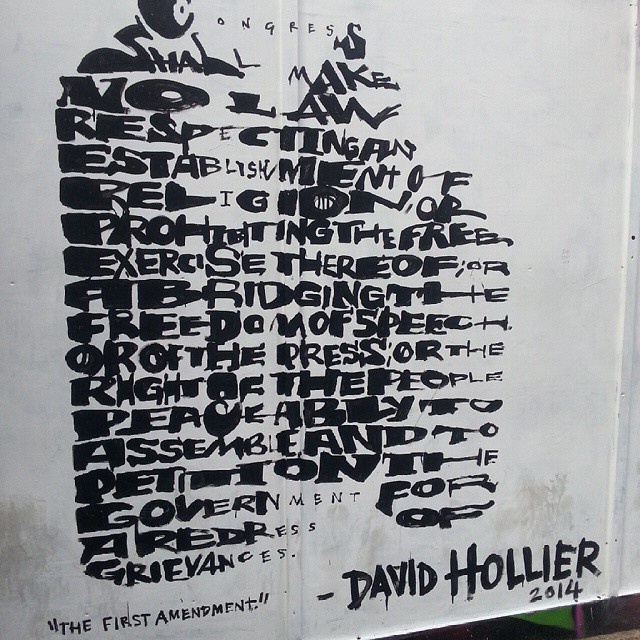 CONGRESS
SHALL MAKE
NO LAW
RESPECTING AN
ESTABLISHMENT OF
RELIGION, OR
PROHIBITING THE FREE
EXERCISE THEREOF; OR
ABRIDGING THE
FREEDOM OF SPEECH.
OR OF THE PRESS, OR THE
RIGHT OF THE PEOPLE
PEACEABLY TO
ASSEMBLE AND TO
PETITION THE
GOVERNMENT FOR
A REDRESS OF
GRIEVANCES.
- DAVID HOLLIER
2014
"THE FIRST AMENDMENT."